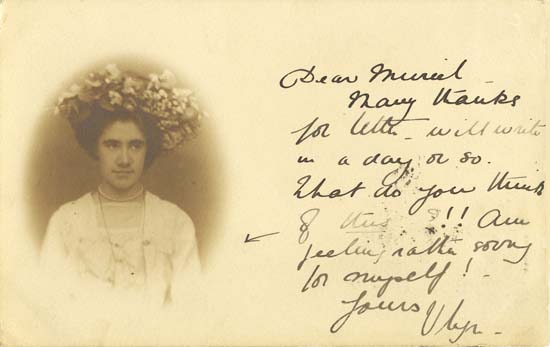 Dear Muriel
Many thanks
for letter - will write
in a day or so.
What do you think
of this !!! Am
feeling rather sorry
for myself!
Yours